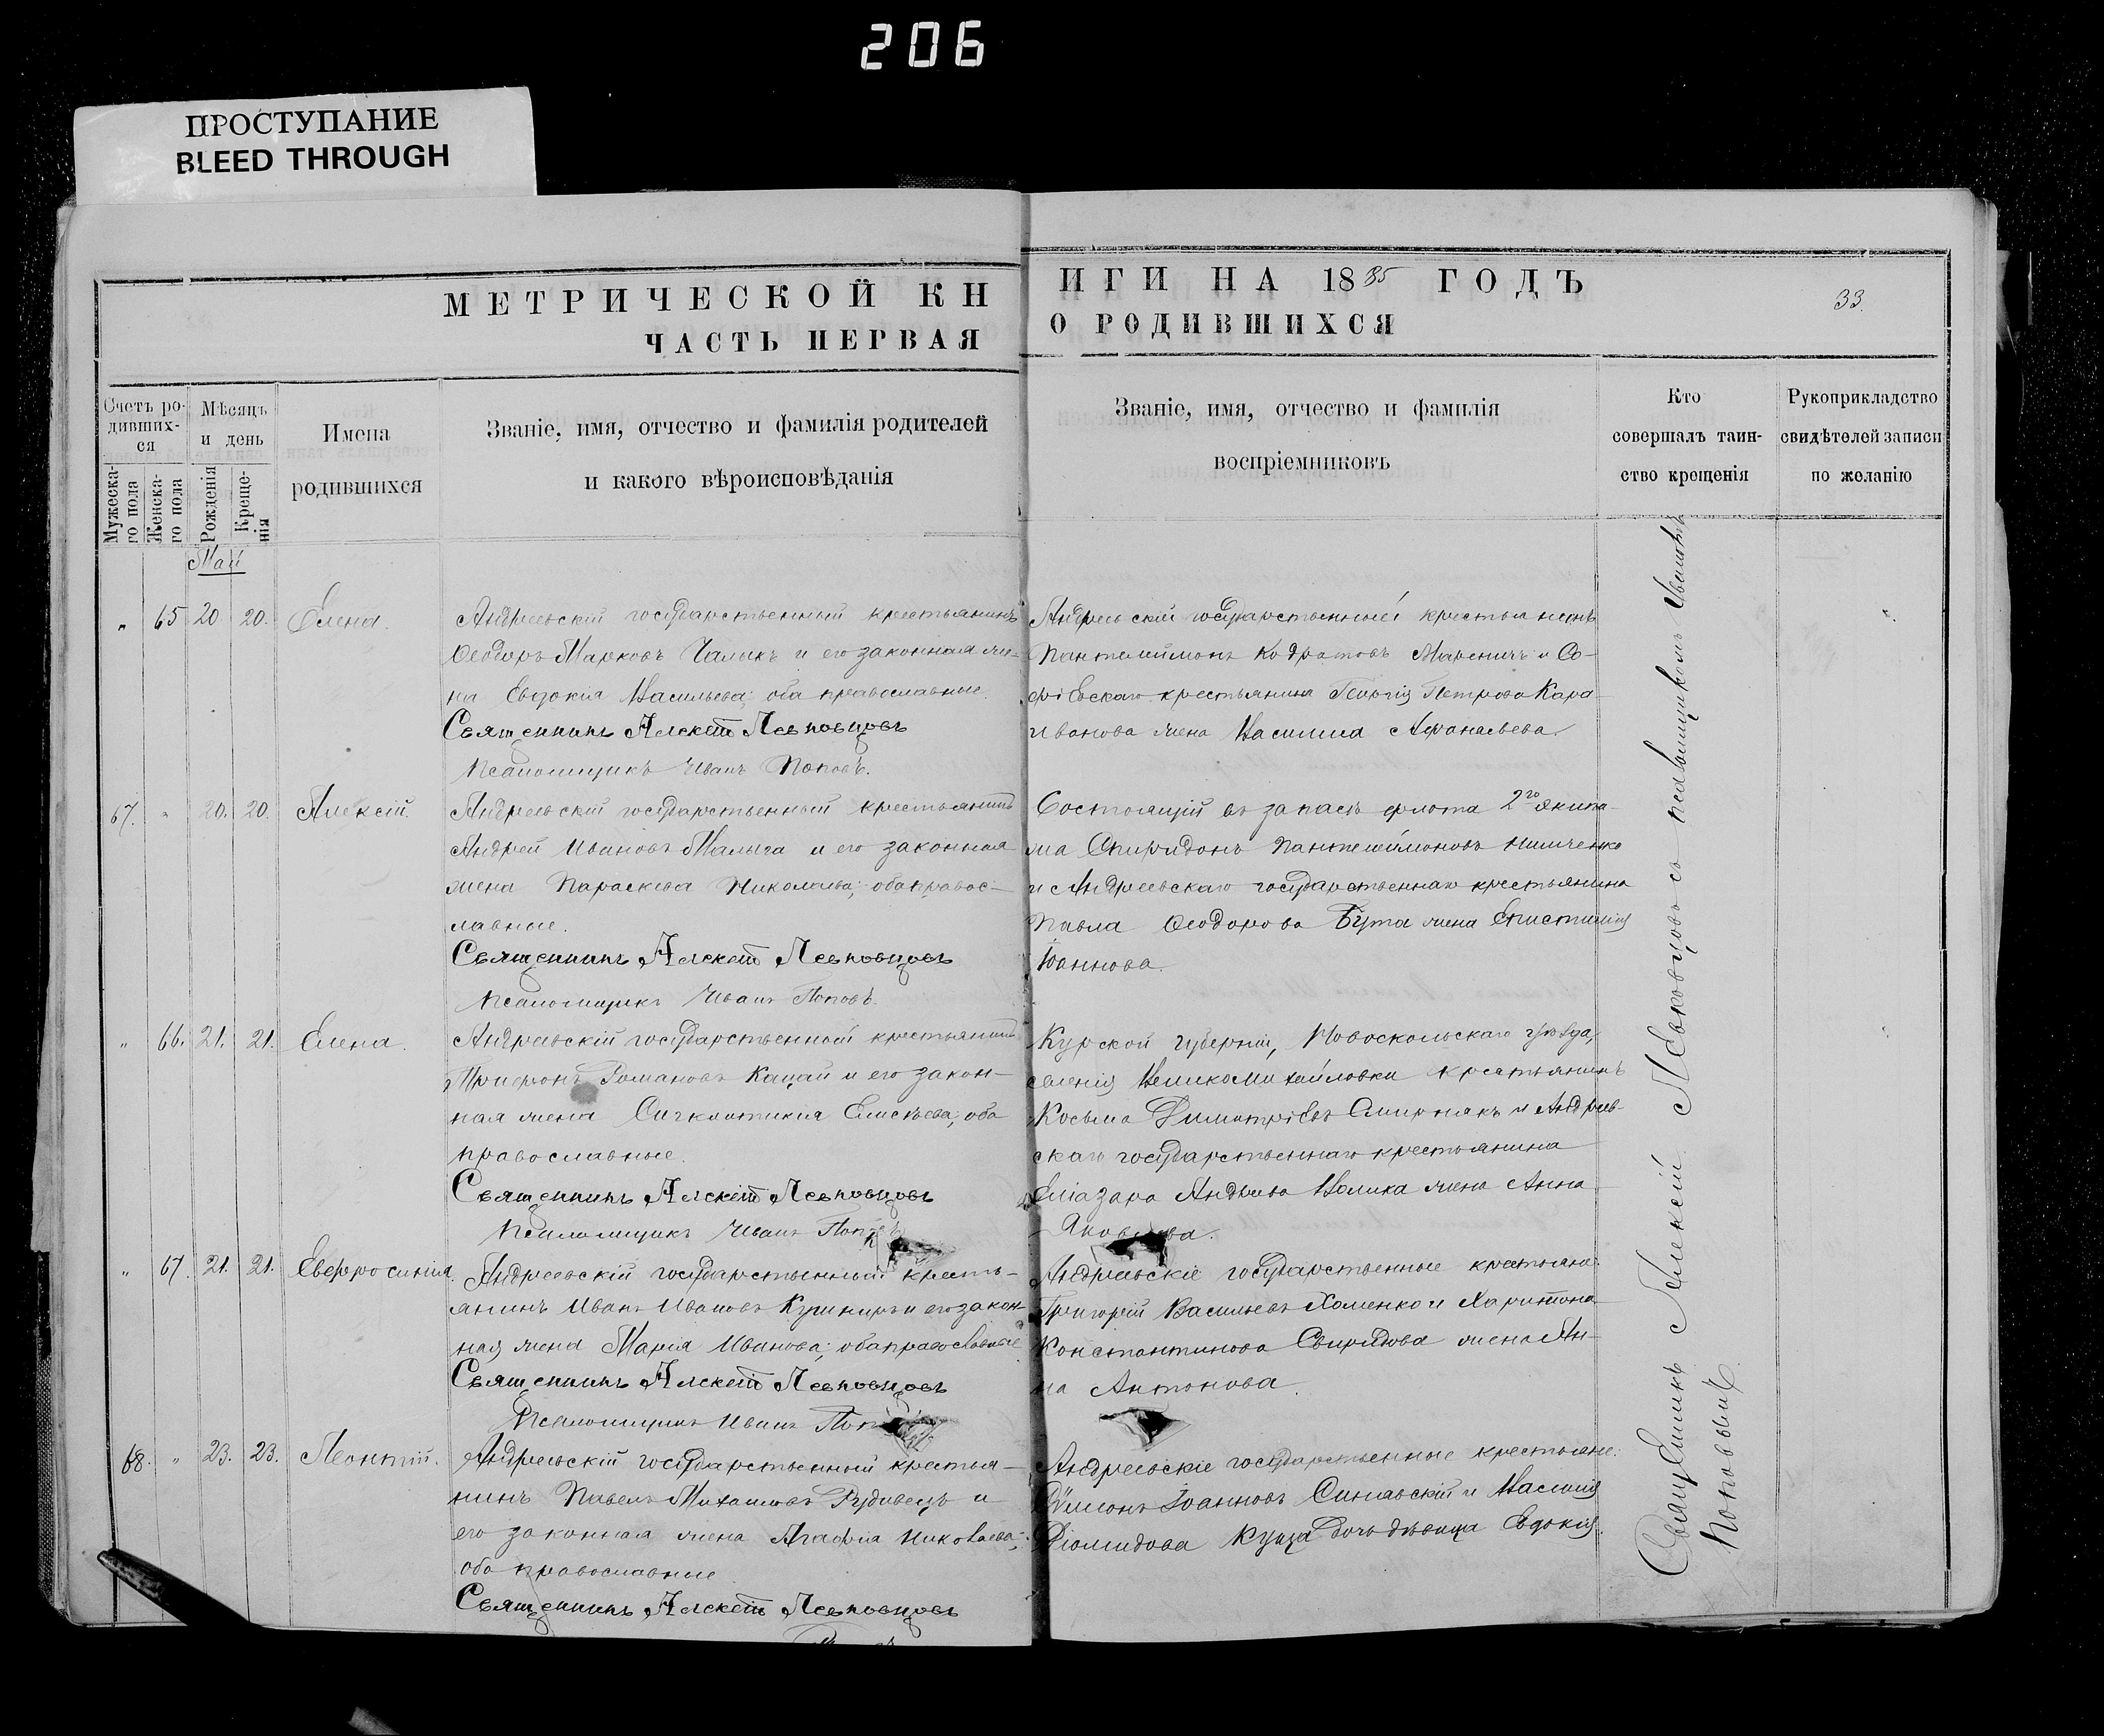 206
ПРОСТУПАНИЕ
BLEED THROUGH
МЕТРИЧЕСКОЙ КНИГИ НА 1885 ГОДЪ
33.
ЧАСТЬ ПЕРВАЯ О РОДИВШИХСЯ
Счетъ ро-
дивших-
ся
Мужеска-
го пола
Женска-
го пола
Мѣсяцъ
и день
Рожденія
Креще-
нія
Имена
родившихся
Званіе, имя, отчество и фамилія родителей
и какого вѣроисповѣданія
Званіе, имя, отчество и фамилія
воспріемниковъ
Кто
совершалъ таин-
ство крещенія
Рукоприкладство
свидѣтелей записи
по желанію
Май
" 65 20. 20. Елена.
Андреевскій государственный крестьянинъ
Ѳеодоръ Марковъ Чалыкъ и его законная же-
на Евдокія Васильева; оба православные.
Священникъ Алексѣй
Псаломщикъ Иванъ Поповъ.
Андреевскій государственный крестьянинъ
Пантелиймонъ Кодратовъ и Со-
фіевскаго крестьянина Георгія Петрова Кара-
иванова жена Василиса Аѳанасьева.
67. " 20. 20. Алексій.
Андреевскій государственный крестьянинъ
Андрей Ивановъ Малыга и его законная
жена Параскева Николаева; оба правос-
лавные.
Священникъ Алексѣй
Псаломщикъ Иванъ Поповъ.
Состоящій въ запасѣ флота 2го экипа-
жа Спиридонъ Пантелеймоновъ
и Андреевскаго государственнаго крестьянина
Павла Ѳеодорова Бута жена Епистимія
Іоаннова.
" 66. 21. 21. Елена.
Андреевскій государственной крестьянинъ
Трифонъ Романовъ Кацай и его закон-
ная жена Елисѣева; оба
православные.
Священникъ Алексѣй
Псаломщикъ Иванъ
Курской губерніи, Новоскольскаго уѣзда,
селенія Великомихайловки крестьянинъ
Косьма Димитріевъ и Андреев-
скаго государственнаго крестьянина
Еліазара Андреева жена Анна
Яковлева.
" 67. 21. 21. Евфросинія.
Андреевскій государственный кресть-
янинъ Иванъ Ивановъ Кушниръ и его закон-
ная жена Марія Иванова; оба православные
Священникъ Алексѣй
Псаломщикъ Иванъ
Андреевскіе государственные крестьяне:
Григорій Васильевъ Хоменко и Харитона
Константинова Свиридова жена Ан-
на Антонова.
68. " 23. 23. Леонтій.
Андреевскій государственный крестья-
нинъ Павелъ Михаиловъ Рудовецъ и
его законная жена Агафія Николаева;
оба православные
Священникъ Алексѣй
Андреевскіе государственные крестьяне:
Іоанновъ Синявскій и
Діомидова дочь дѣвица Евдокія.
Священникъ Алексій съ псаломщикомъ Иваномъ
Поповымъ.